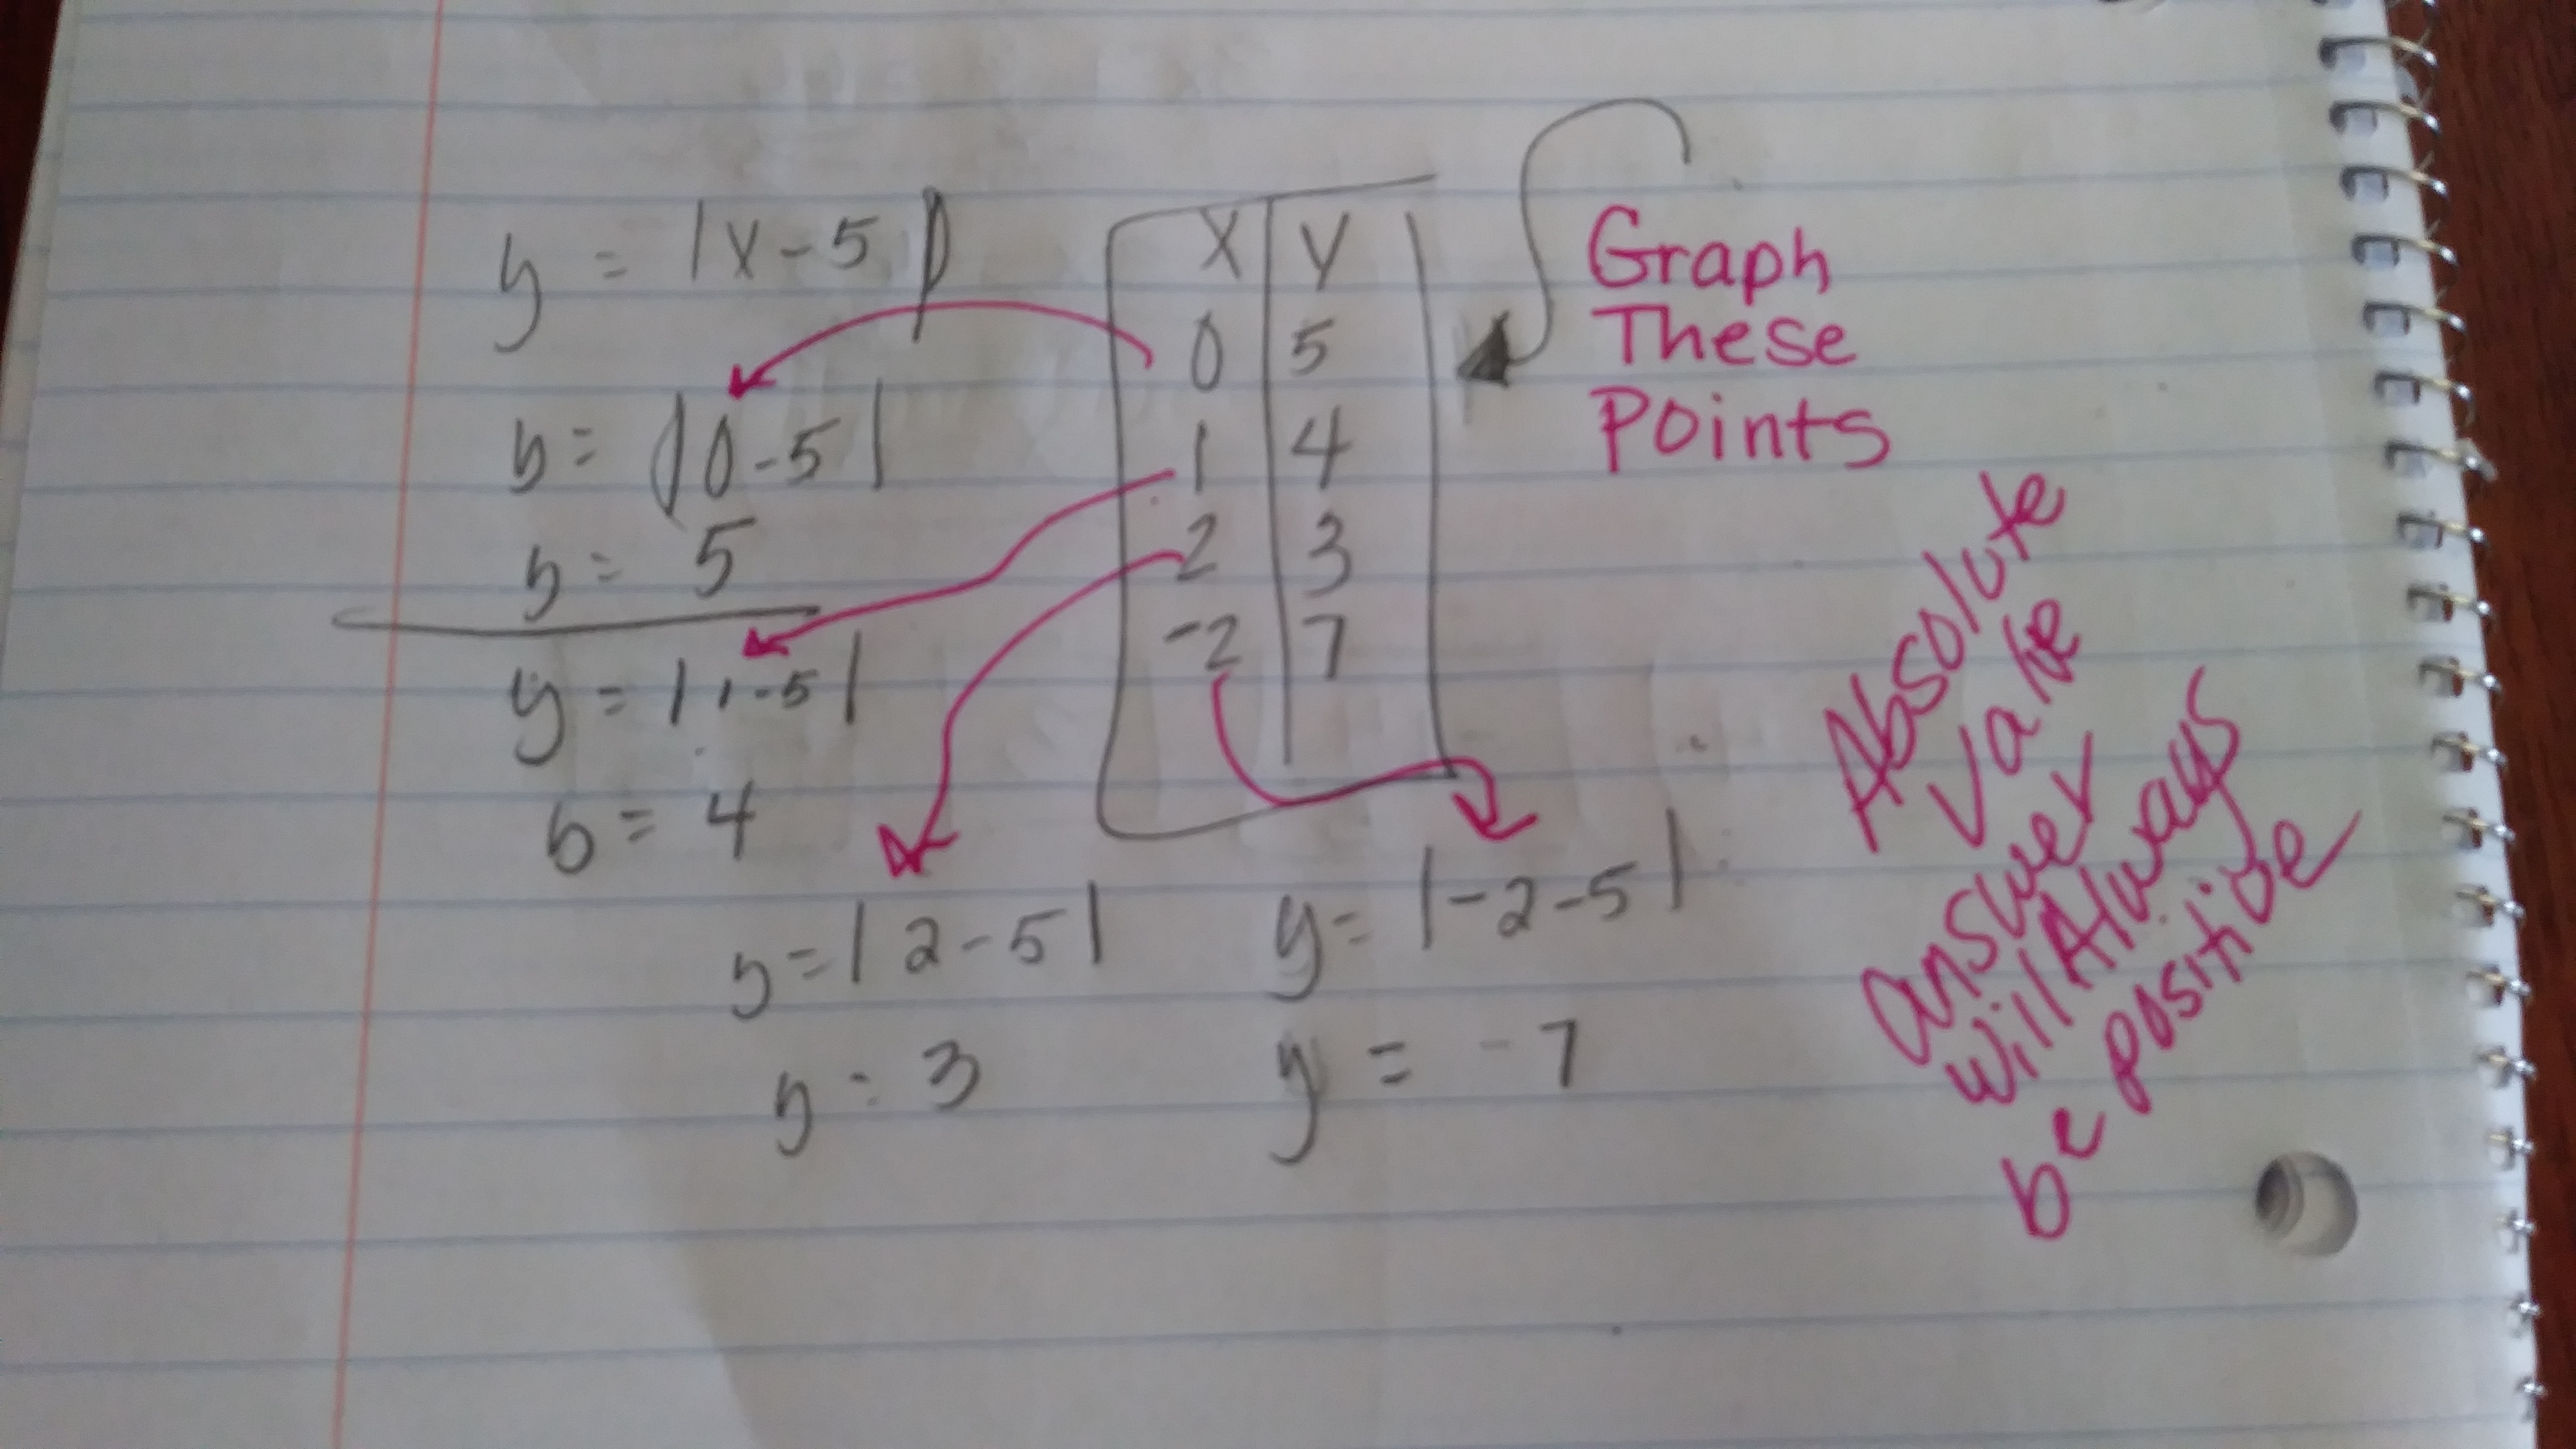 y = |x - 5|
y = |0 - 5|
y = 5
y = |1 - 5|
y = 4
y = |2 - 5|
y = 3
X Y
0 5
1 4
2 3
-2 7
y = |-2 - 5|
y = -7
Graph
These
Points
Absolute
Value
answer
will Always
be positive